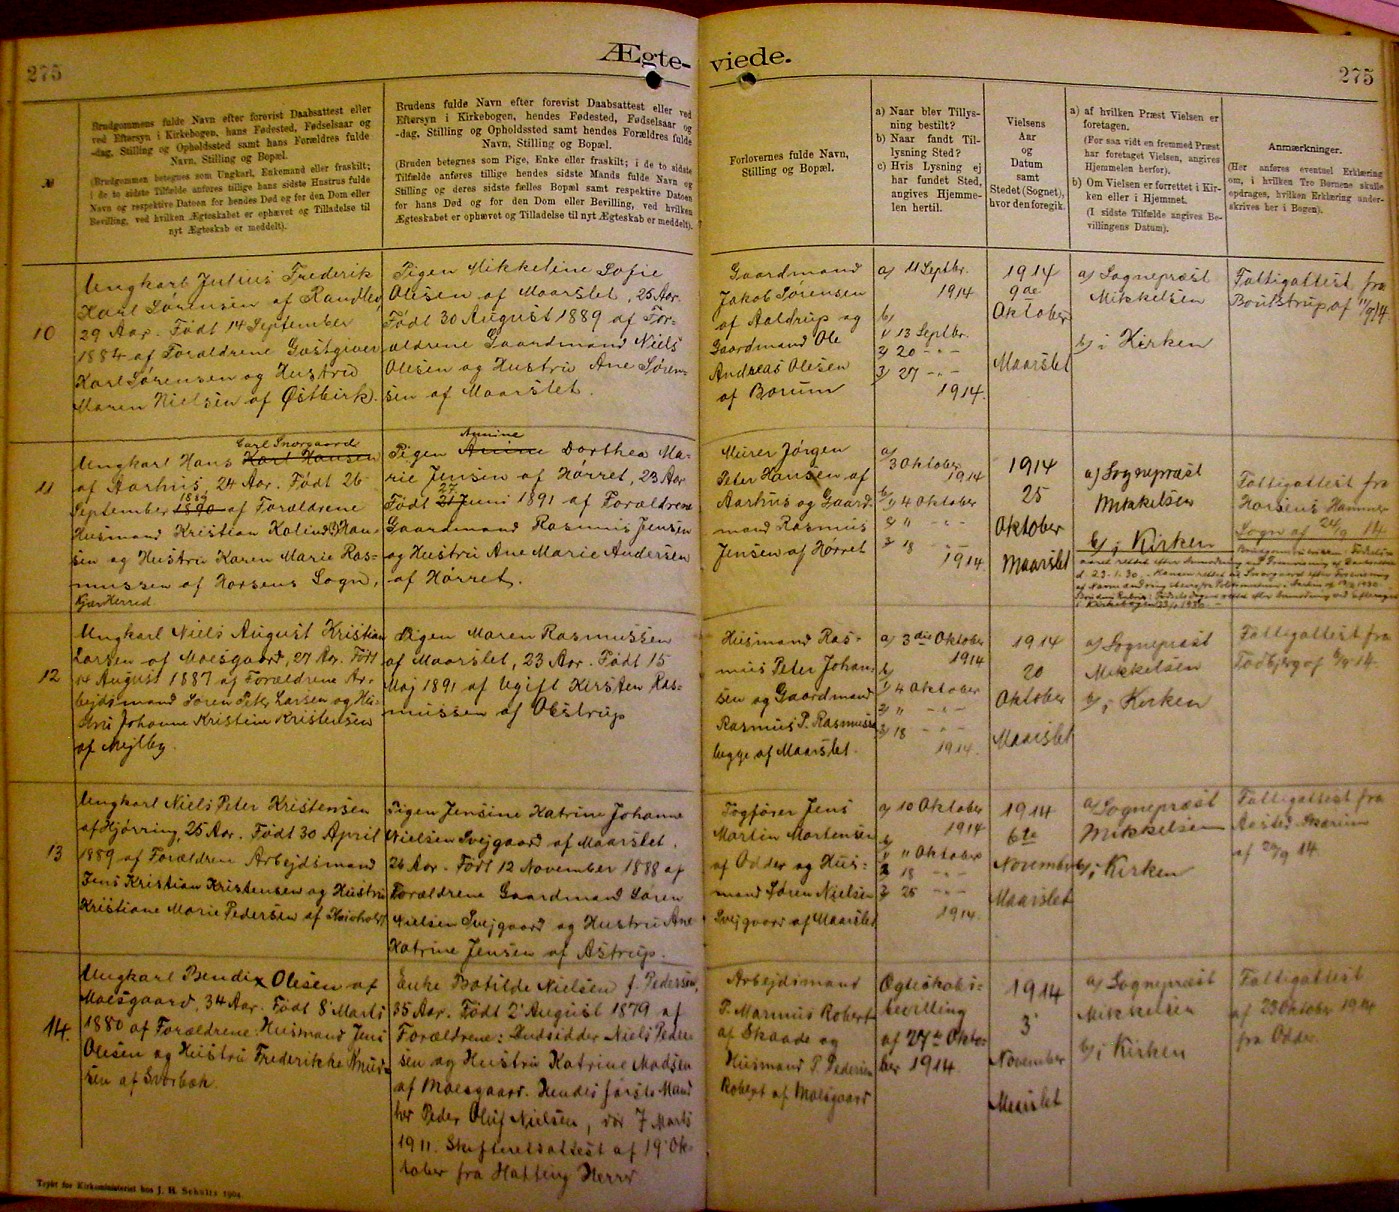 275
Ægte-
viede.
275
№
Brudgommens fulde Navn efter forevist Daabsattest eller
ved Eftersyn i Kirkebogen, hans Fødested, Fødselsaar og
-dag, Stilling og Opholdssted samt hans Forældres fulde
Navn, Stilling og Bopæl.
(Brudgommen betegnes som Ungkarl, Enkemand eller fraskilt;
i de to sidste Tilfælde anføres tillige hans sidste Hustrus fulde
Navn og respektive Datoen for hendes Død og for den Dom eller
Bevilling, ved hvilken Ægteskabet er ophævet og Tilladelse til
nyt Ægteskab er meddelt).
Brudens fulde Navn efter forevist Daabsattest eller ved
Eftersyn i Kirkebogen, hendes Fødested, Fødselsaar og
-dag, Stilling og Opholdssted samt hendes Forældres fulde
Navn, Stilling og Bopæl.
(Bruden betegnes som Pige, Enke eller fraskilt; i de to sidste
Tilfælde anføres tillige hendes sidste Mands fulde Navn og
Stilling og deres sidste fælles Bopæl samt respektive Datoen
for hans Død og for den Dom eller Bevilling, ved hvilken
Ægteskabet er ophævet og Tilladelse til nyt Ægteskab er meddelt).
Forlovernes fulde Navn,
Stilling og Bopæl.
a) Naar blev Tillys-
ning bestilt?
b) Naar fandt Til-
lysning Sted?
c) Hvis Lysning ej
har fundet Sted,
angives Hjemme-
len hertil.
Vielsens
Aar
og
Datum
samt
Stedet (Sognet),
hvor den foregik.
a) af hvilken Præst Vielsen er
foretagen.
(For saa vidt en fremmed Præst
har foretaget Vielsen, angives
Hjemmelen herfor).
b) Om Vielsen er forrettet i Kir-
ken eller i Hjemmet.
(I sidste Tilfælde angives Be-
villingens Datum).
Anmærkninger.
(Her anføres eventuel Erklæring
om, i hvilken Tro Børnene skulle
opdrages, hvilken Erklæring under-
skrives her i Bogen).
10
Ungkarl Julius Frederik
Karl Sørensen af Randlev,
29 Aar. Født 14 September
1884 af Forældrene Gæstgiver
Karl Sørensen og Hustru
Maren Nielsen af Østbirk.
Pigen Mikkeline Sofie
Olesen af Maarslet, 25 Aar.
Født 30 August 1889 af For-
ældrene Gaardmand Niels
Olesen og Hustru Ane Søren-
sen af Maarslet.
Gaardmand
Jakob Sørensen
af Aaldrup og
Gaardmand Ole
Andreas Olesen
af Borum
a) 11 Septbr.
1914
b)
1) 13 Septbr.
2) 20 - " -
3) 27 - " -
1914.
1914
9de
Oktober
Maarslet
a) Sognepræst
Mikkelsen
b) i Kirken
Fattigattest fra
11/9 14
11
Carl Snorgaard
Ungkarl Hans Karl Hansen
af Aarhus, 24 Aar. Født 26
1889
September 1890 af Forældrene
Husmand Kristian Han-
sen og Hustru Karen Marie Ras-
mussen af Horsens Sogn,
Herred
Pigen Anine Dorthea Ma-
rie Jensen af Hørret, 23 Aar
27
Født 21 Juni 1891 af Forældrene
Gaardmand Rasmus Jensen
og Hustru Ane Marie Andersen
af Hørret.
Murer Jørgen
Peter Hansen af
Aarhus og Gaard-
mand Rasmus
Jensen af Hørret
a)
3 Oktober
1914
b)
1) 4 Oktober
2) 11 - " -
3) 18 - " -
1914
1914
25
Oktober
Maarslet
a) Sognepræst
Mikkelsen
b) i Kirken
Fattigattest fra
Horsens Hammer
Sogn af 24/9 14.
12
Ungkarl Niels August Kristian
Larsen af Moesgaard, 27 Aar. Født
14 August 1887 af Forældrene Ar-
bejdsmand Søren Peter Larsen og Hu-
stru Johanne Kristine Kristensen
af Mejlby.
Pigen Maren Rasmussen
af Maarslet, 23 Aar. Født 15
Maj 1891 af Ugift Kirsten Ras-
mussen af Obstrup
Husmand Ras-
mus Peter Johan-
sen og Gaardmand
Rasmus P. Rasmussen
begge af Maarslet.
a) 3die Oktober
1914
b)
1) 4 Oktober
2) 11 - " -
3) 18 - " -
1914.
1914
20
Oktober
Maarslet
a) Sognepræst
Mikkelsen
b) i Kirken
Fattigattest fra
Todbjerg af 14.
13
Ungkarl Niels Peter Kristensen
af Hjørring, 25 Aar. Født 30 April
1889 af Forældrene Arbejdsmand
Jens Kristian Kristensen og Hustru
Kristiane Marie Pedersen af
Pigen Jensine Katrine Johanne
Nielsen Svejgaard af Maarslet,
26 Aar. Født 12 November 1888 af
Forældrene Gaardmand Søren
Nielsen Svejgaard og Hustru Ane
Katrine Jensen af Astrup.
Togfører Jens
Martin Mortensen
af Odder og Hus-
mand Søren Nielsen
Svejgaard af Maarslet
a) 10 Oktober
1914
b)
1) 11 Oktober
2) 18 - " -
3) 25 - " -
1914.
1914
6te
November
Maarslet
a) Sognepræst
Mikkelsen
b) i Kirken
Fattigattest fra
14.
14.
Ungkarl Bendix Olesen af
Moesgaard, 34 Aar. Født 8' Marts
1880 af Forældrene: Husmand Jens
Olesen og Hustru Frederikke Knud-
sen af
Enke Botilde Nielsen f. Pedersen,
35 Aar. Født 2' August 1879 af
Forældrene: Indsidder Niels Peder-
sen og Hustru Katrine Madsen
af Moesgaard. Hendes første Mand
var Peder Oluf Nielsen, død 7 Marts
1911. Skifteretsattest af 19' Ok-
tober fra Hatting Herred
Arbejdsmand
P. Marinus Robert
af Skaade og
Husmand P. Pedersen
Robert af Moesgaard
Ægteskabs-
bevilling
af 27de Okto-
ber 1914.
1914
3'
November
Maarslet
a) Sognepræst
Mikkelsen
b) i Kirken
Fattigattest
af 23 Oktober 1914
fra Odder.
Trykt for Kirkeministeriet hos J. H. Schultz 1904.